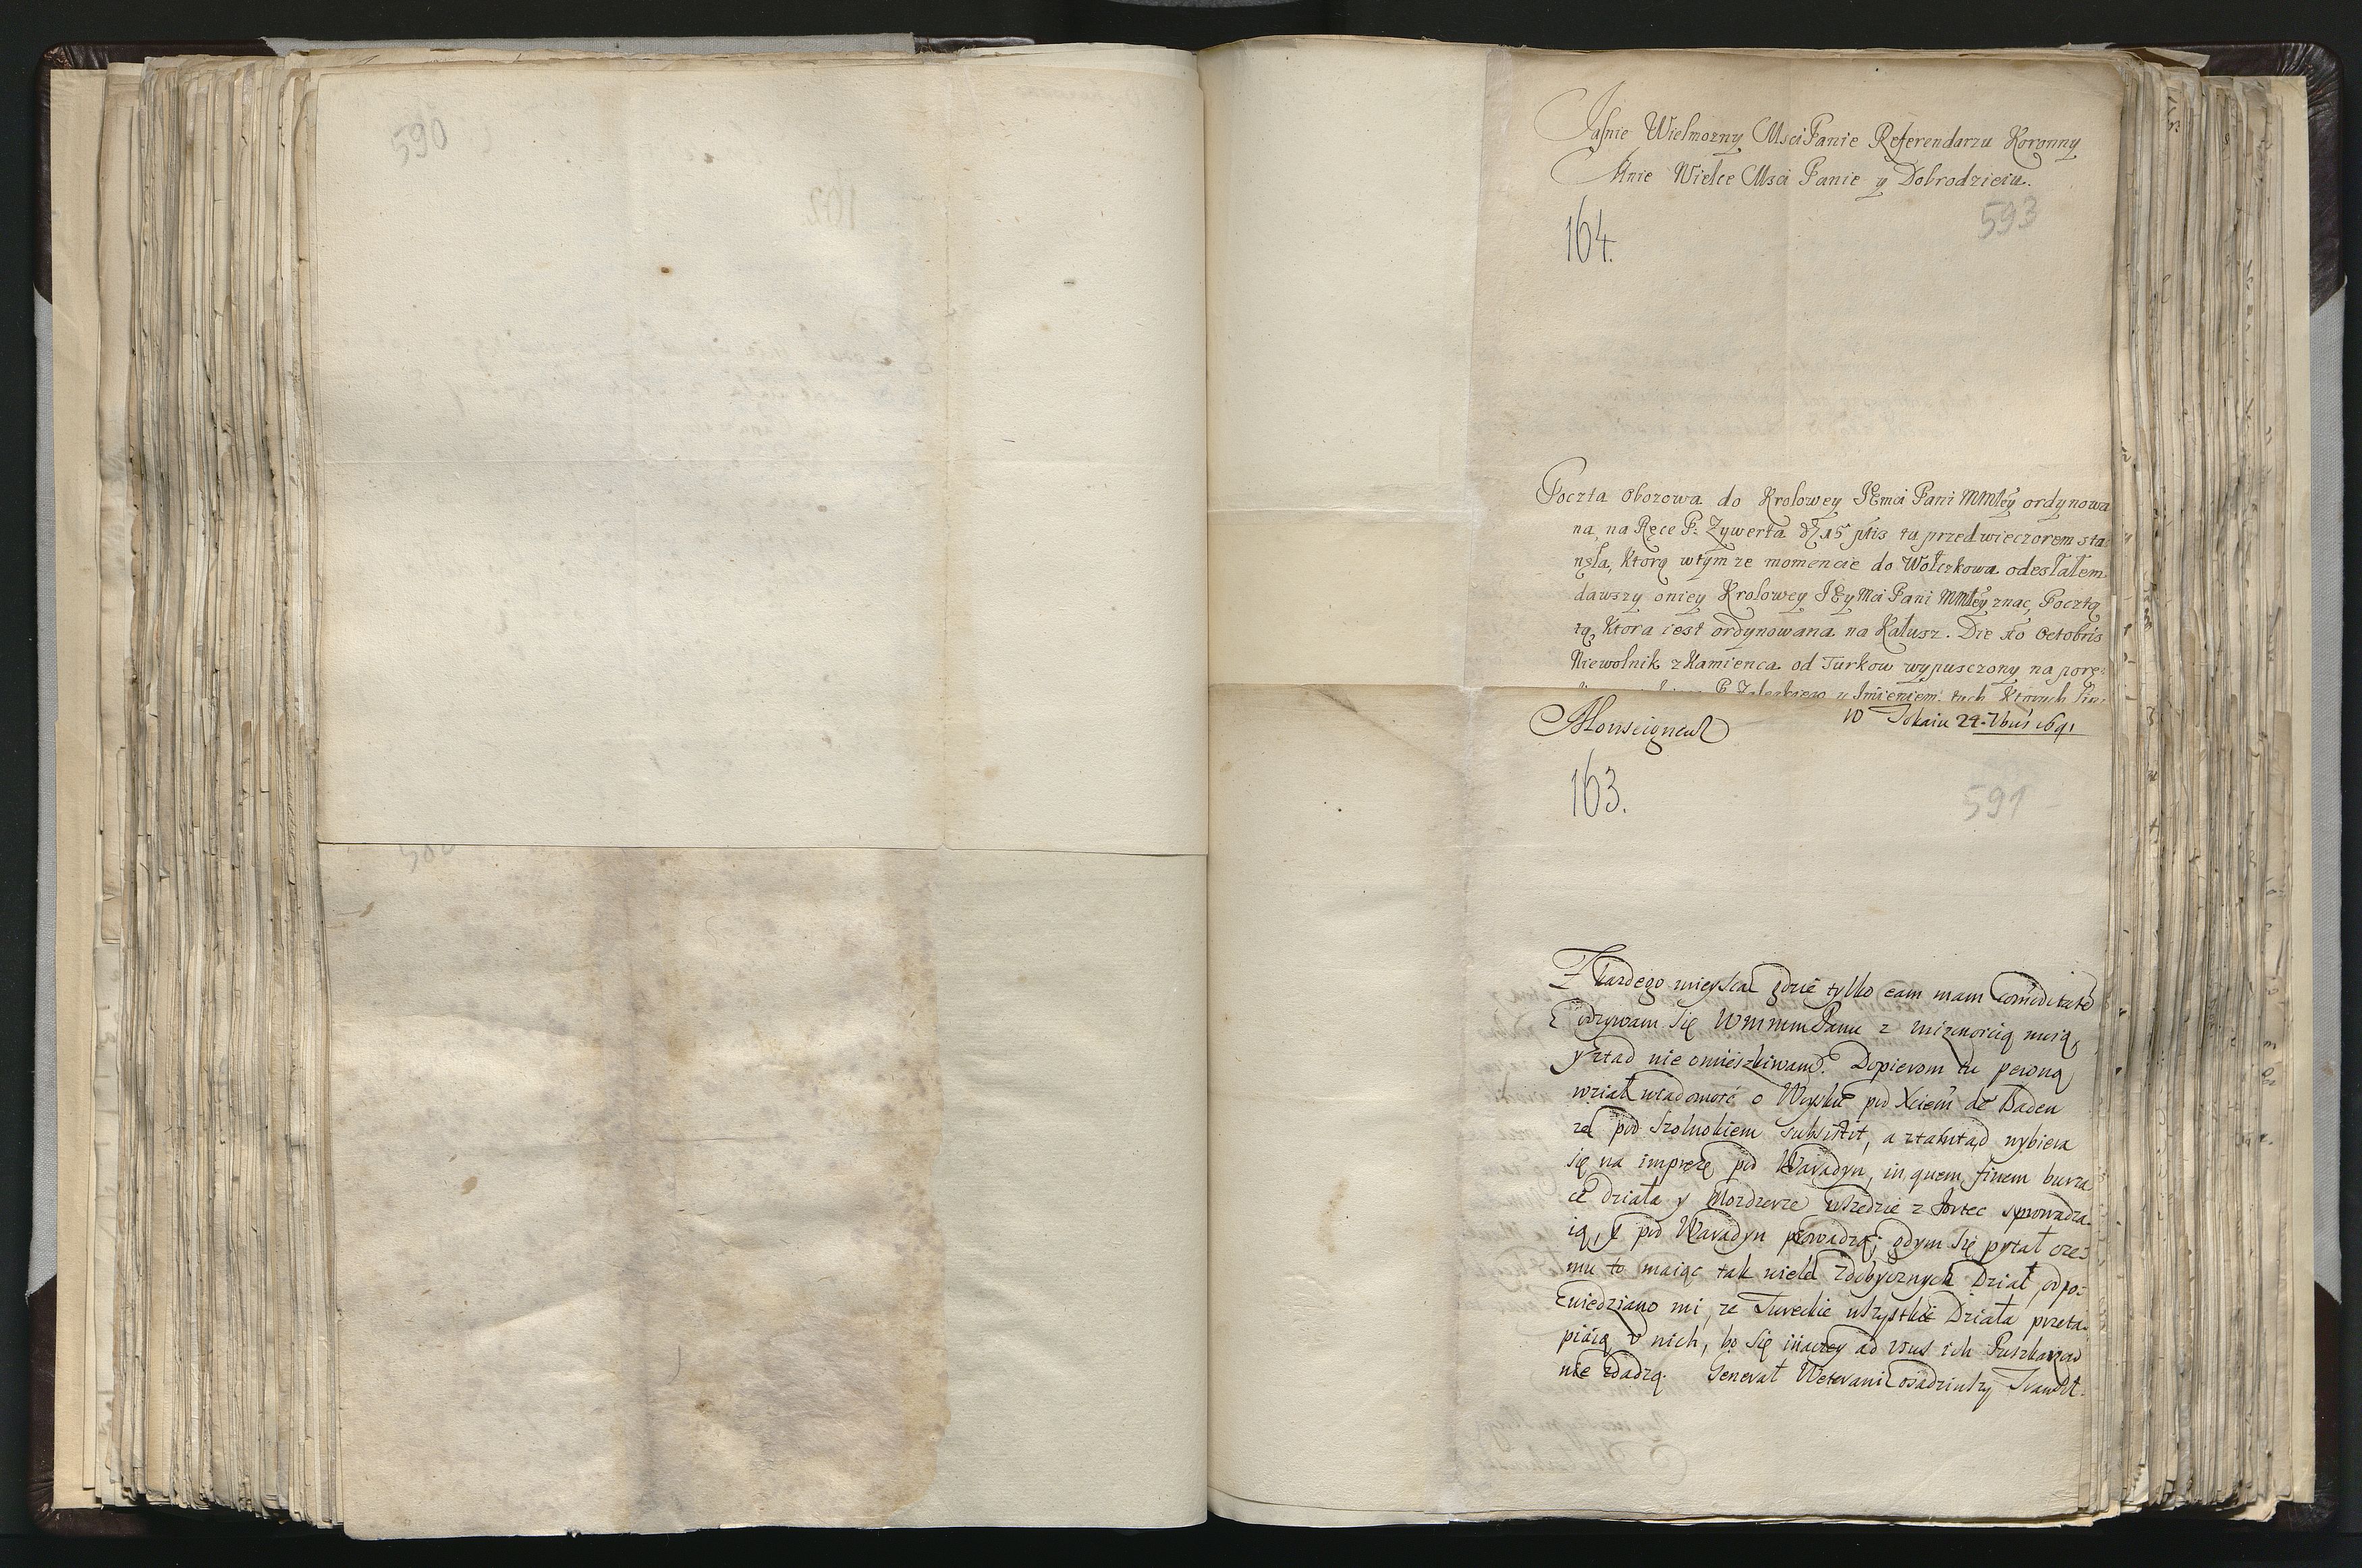 590
Jasnie Wielmozny Msci Panie Referendarzu Koronny
Mnie Wielce Msci Panie y Dobrodzieiu.
593
164.
Poczta Obozowa do Krolowey JEmci Pani MMłey ordynowa
na, na Ręce P: Zywerta 15 tu przed wieczorem sta-
nęła, Ktorą w tym ze momencie do Wołczkowa odesłałem
dawszy oniey Krolowey JEyMci Pani MMłey znac, Pocztą
tą, Ktora iest ordynowana na Kałusz. Die Octobris
Niewolnik z Kamienca od Turkow wypusczony na porę-
P Zaleskiego y Imieniem tych Ktorych
Monseigneur
w Tokaiu 24 7bris 1691
163.
591
Z kazdego mieysca gdzie tylko mam comoditatē
odzywam się WMMMPanu z nizkoscią moią,
y ztąd nie omieszkiwam. Dopierom tu pewną
wziął wiadomość o Woysku pod Xciem de Baden
ze pod Szolnokiem subsistit, a ztamtąd wybiera
się na imprezę pod Waradyn, in quem finem burzą
ce działa y Mozdzerze wszędzie z Fortec sprowadza
ią, y pod Waradyn prowadzą; gdym się pytał cze-
mu to maiąc tak wiele zdobycznych Dział odpo-
wiedziano mi, ze Tureckie wszystkie Działa przeta-
piaią u nich, bo się inaczey ad usus ich Puszkarzow
nie zdadzą. Generał Weterani osadziwszy